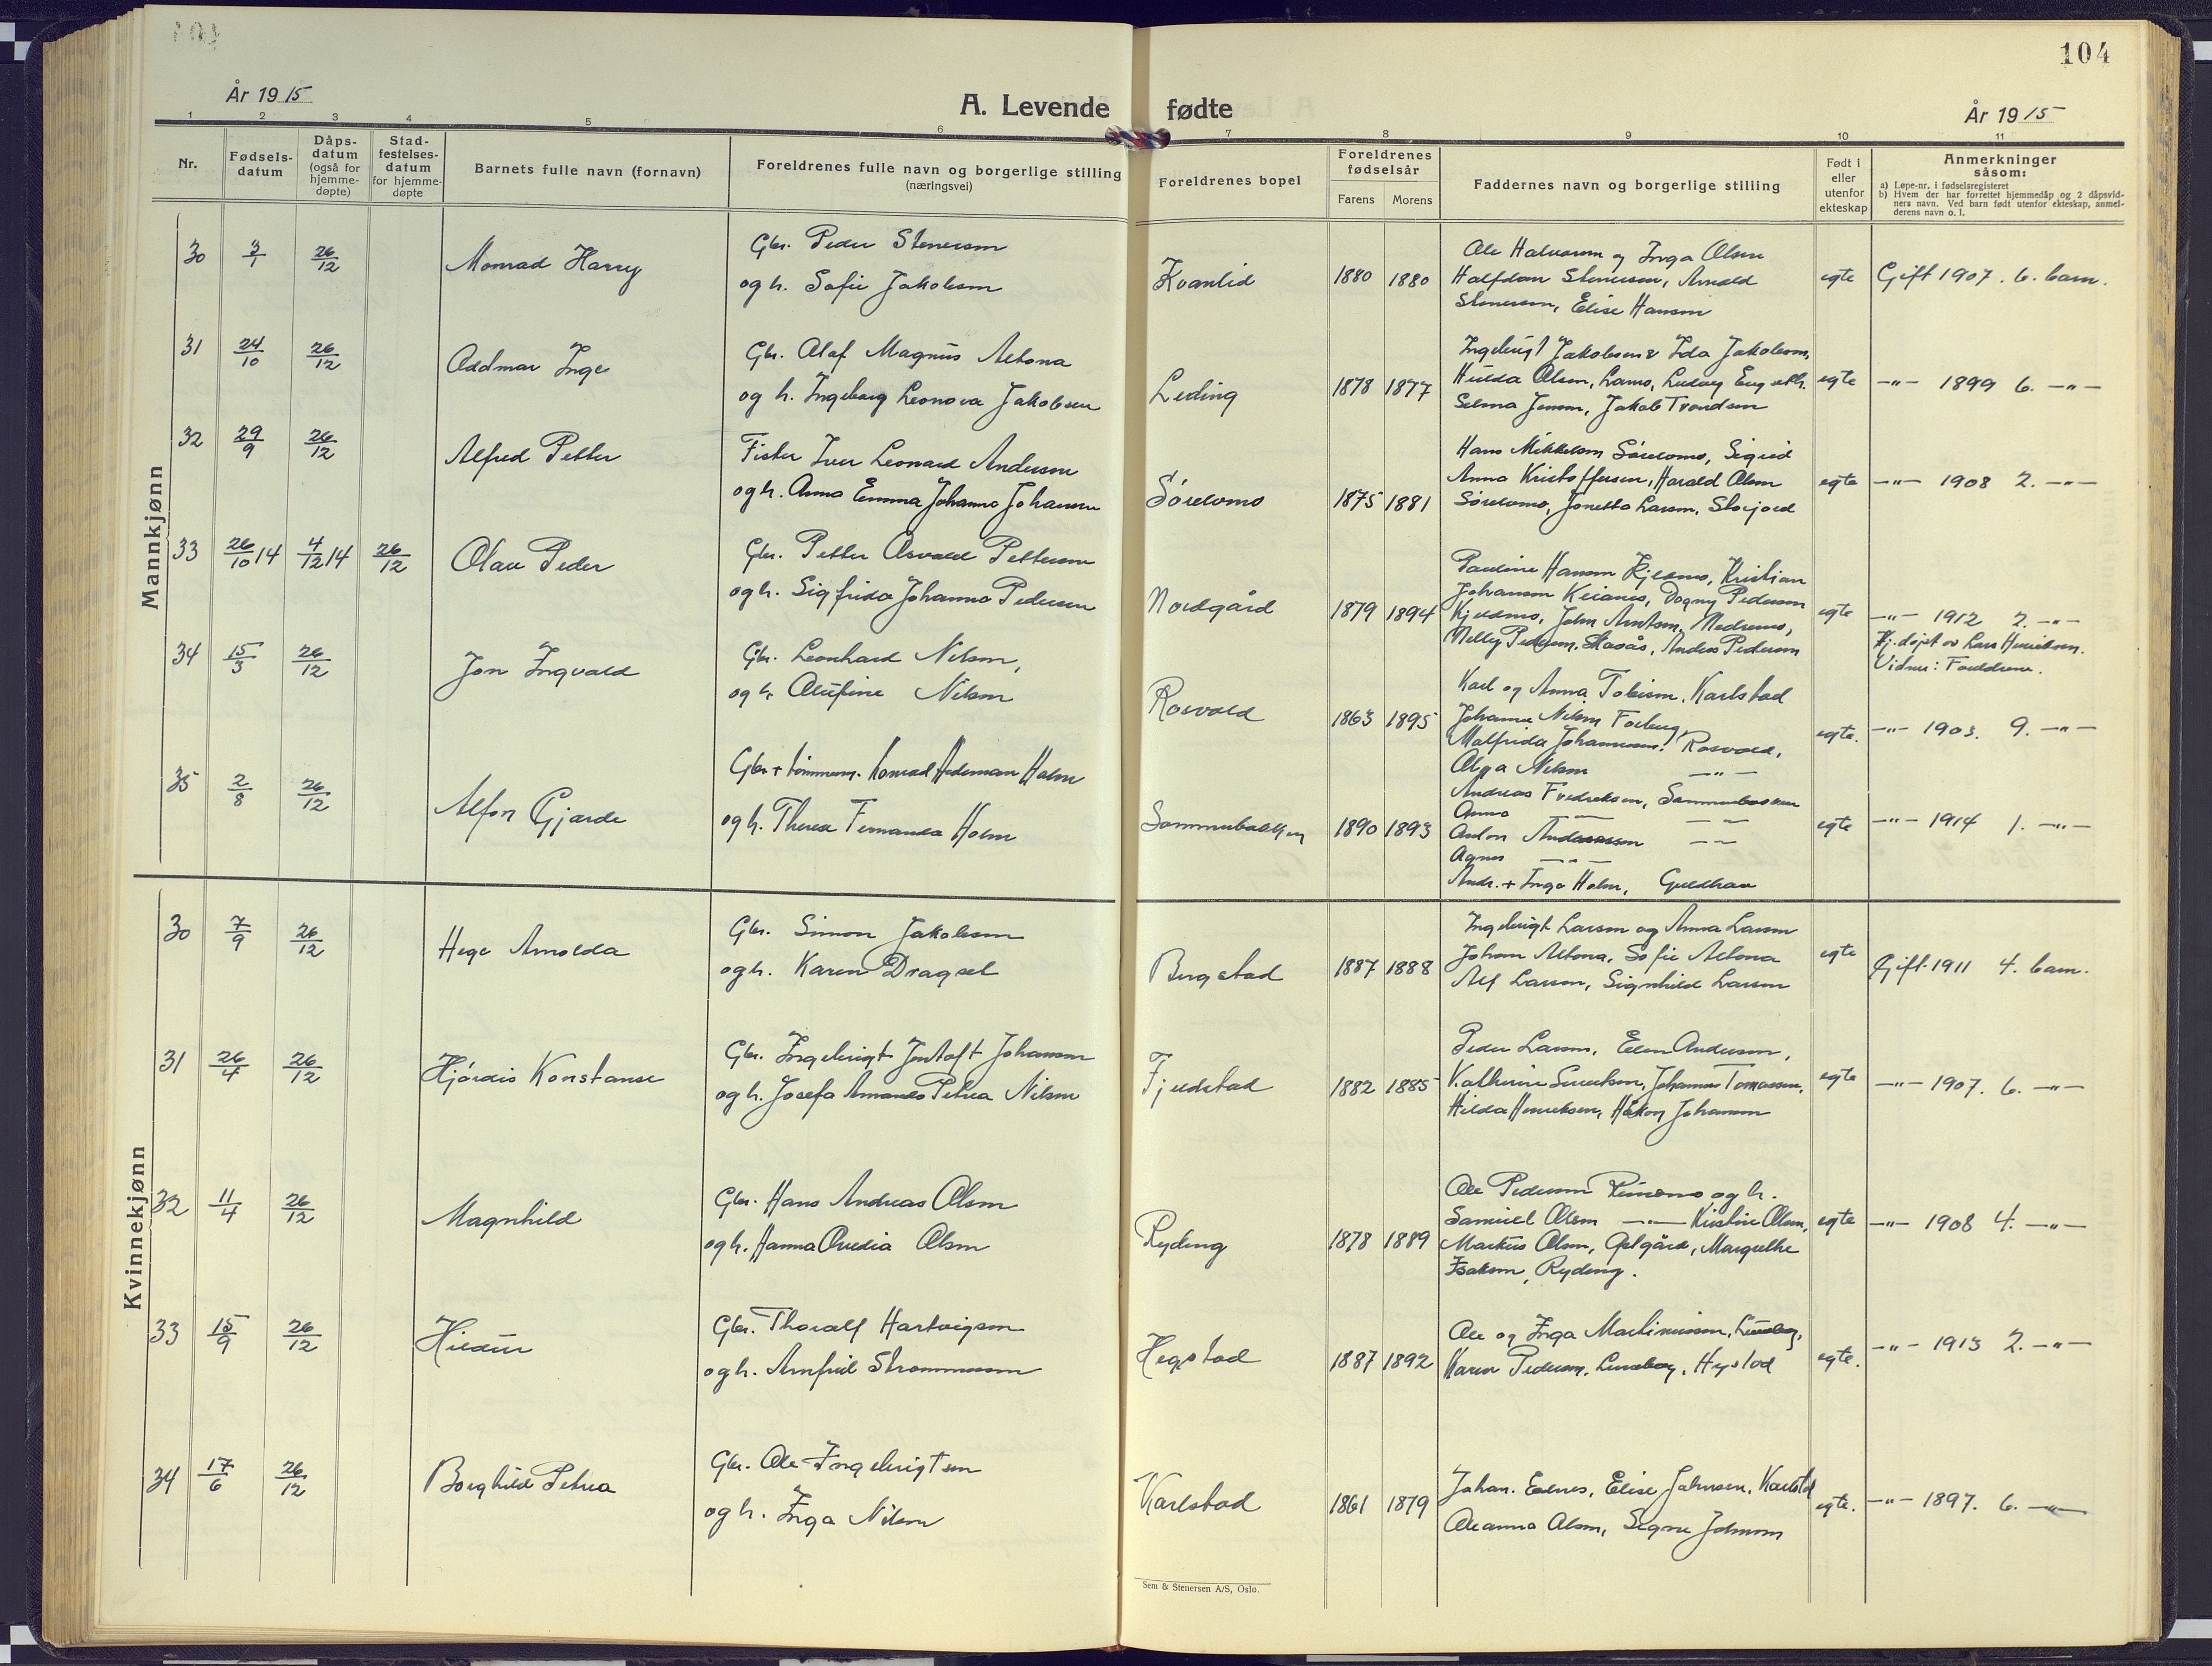 104
År 1915
A. Levende fødte
År 1915
1 2 3 4 5 6 7 8 9 10 11
Nr.
Fødsels-
datum
Dåps-
datum
(også for
hjemme-
døpte)
Stad-
festelses-
datum
for hjemme-
døpte
Barnets fulle navn (fornavn)
Foreldrenes fulle navn og borgerlige stilling
(næringsvei)
Foreldrenes bopel
Foreldrenes
fødselsår
Farens Morens
Faddernes navn og borgerlige stilling
Født i
eller
utenfor
ekteskap
Anmerkninger
såsom:
a) Løpe-nr. i fødselsregisteret
b) Hvem der har forrettet hjemmedåp og 2 dåpsvid-
ners navn. Ved barn født utenfor ekteskap, anmel-
derens navn o. l.
Mannkjønn
30 3/1 26/12 Monrad Harry
Gbr. Peder Stenersen
og h. Sofie Jakobsen
Kvanlid 1880 1880
Ole Halvorsen og Inga Olsen
Halfdan Stenersen, Arnold
Stenersen, Elise Hansen
egte Gift 1907. 6. barn.
31 24/10 26/12 Oddmar Inge
Gbr. Olaf Magnus Altona
og h. Ingeborg Leonora Jakobsen
Leding 1878 1877
Ingebrigt Jakobsen & Ida Jakobsen,
Hulda Olsen, Ludvig
Selma Jensen, Jakob Trondsen
egte -"- 1899 6. -"-
32 29/9 26/12 Alfred Petter
Fisker Iver Leonard Andersen
og h. Anna Emma Johanna Johansen
Sørelvmo 1875 1881
Hans Mikkelsen Sørelvmo, Sigrid
Anna Kristoffersen, Harald Olsen
Sørelvmo, Jonetta Larsen, Storjord
egte -"- 1908 2. -"-
33 26/10 14 4/12 14 26/12 Olav Peder
Gbr. Petter Osvald Pettersen
og h. Sigfrida Johanna Pedersen
Nordgård 1879 1894
Pauline Hansen Kjelmo, Kristian
Johansen Dagny Pedersen
John Arntsen, Nedremo,
Nelly Pedersen, Anders Pedersen
egte -"- 1912 2. -"-
Hj. døpt av Lars Henriksen.
Vidner: Foreldrene.
34 15/3 26/12 Jon Ingvald
Gbr. Leonhard Nilsen,
og h. Olufine Nilsen
Rosvold 1863 1895
Karl og Anna Tobisen, Karlstad
Johanna Nilsen Forberg,
Malfrida Johannesen, Rosvold,
Olga Nilsen -"-
egte. -"- 1903. 9. -"-
35 2/8 26/12 Alfon Gjarde
Gbr + tømmerm. Konrad Hedeman Holm
og h. Therese Fernanda Holm
Sommerbakken 1890 1893
Andreas Fredriksen, Sommerbakken
Anna -"- -"-
Anton Andreassen -"-
Agnes -"-
Andr. + Inga Holm, Guldhav
egte -"- 1914 1. -"-
Kvinnekjønn
30 7/9 26/12 Hege Arnolda
Gbr. Simon Jakobsen
og h. Karen Dragsel
Bergstad 1887 1888
Ingebrigt Larsen og Anna Larsen
Johan Altona, Sofie Altona
Alf Larsen, Signhild Larsen
egte Gift 1911 4. barn.
31 26/4 26/12 Hjørdis Konstanse
Gbr. Ingebrigt Jentoft Johansen
og h. Josefa Amanda Petrea Nilsen
Fjeldstad 1882 1885
Peder Larsen, Ellen Andersen,
Kathrine Johannes Tomassen,
Hilda Henriksen, Håkon Johansen
egte -"- 1907. 6. -"-
32 11/4 26/12 Magnhild
Gbr. Hans Andreas Olsen
og h. Hanna Ovedia Olsen
Ryding 1878 1889
Ole Pedersen og h.
Samuel Olsen -"- Kristine Olsen,
Markus Olsen, Margrethe
Isaksen, Ryding.
egte -"- 1908 4. -"-
33 15/9 26/12 Hildur
Gbr. Thoralf Hartvigsen
og h. Arnfrid Strømmesen
Hegstad 1887 1892
Ole og Inga Martinussen, Lundberg,
Karen Pedersen, Lundberg, Hegstad
egte. -"- 1913 2. -"-
34 17/6 26/12 Borghild Petrea
Gbr. Ole Ingebrigtsen
og h. Inga Nilsen
Karlstad 1861 1879
Johan. Elise Johnsen, Karlstad
Oleanna Olsen, Signe Johnsen
egte. -"- 1897. 6. -"-
Sem & Stenersen A/S, Oslo.